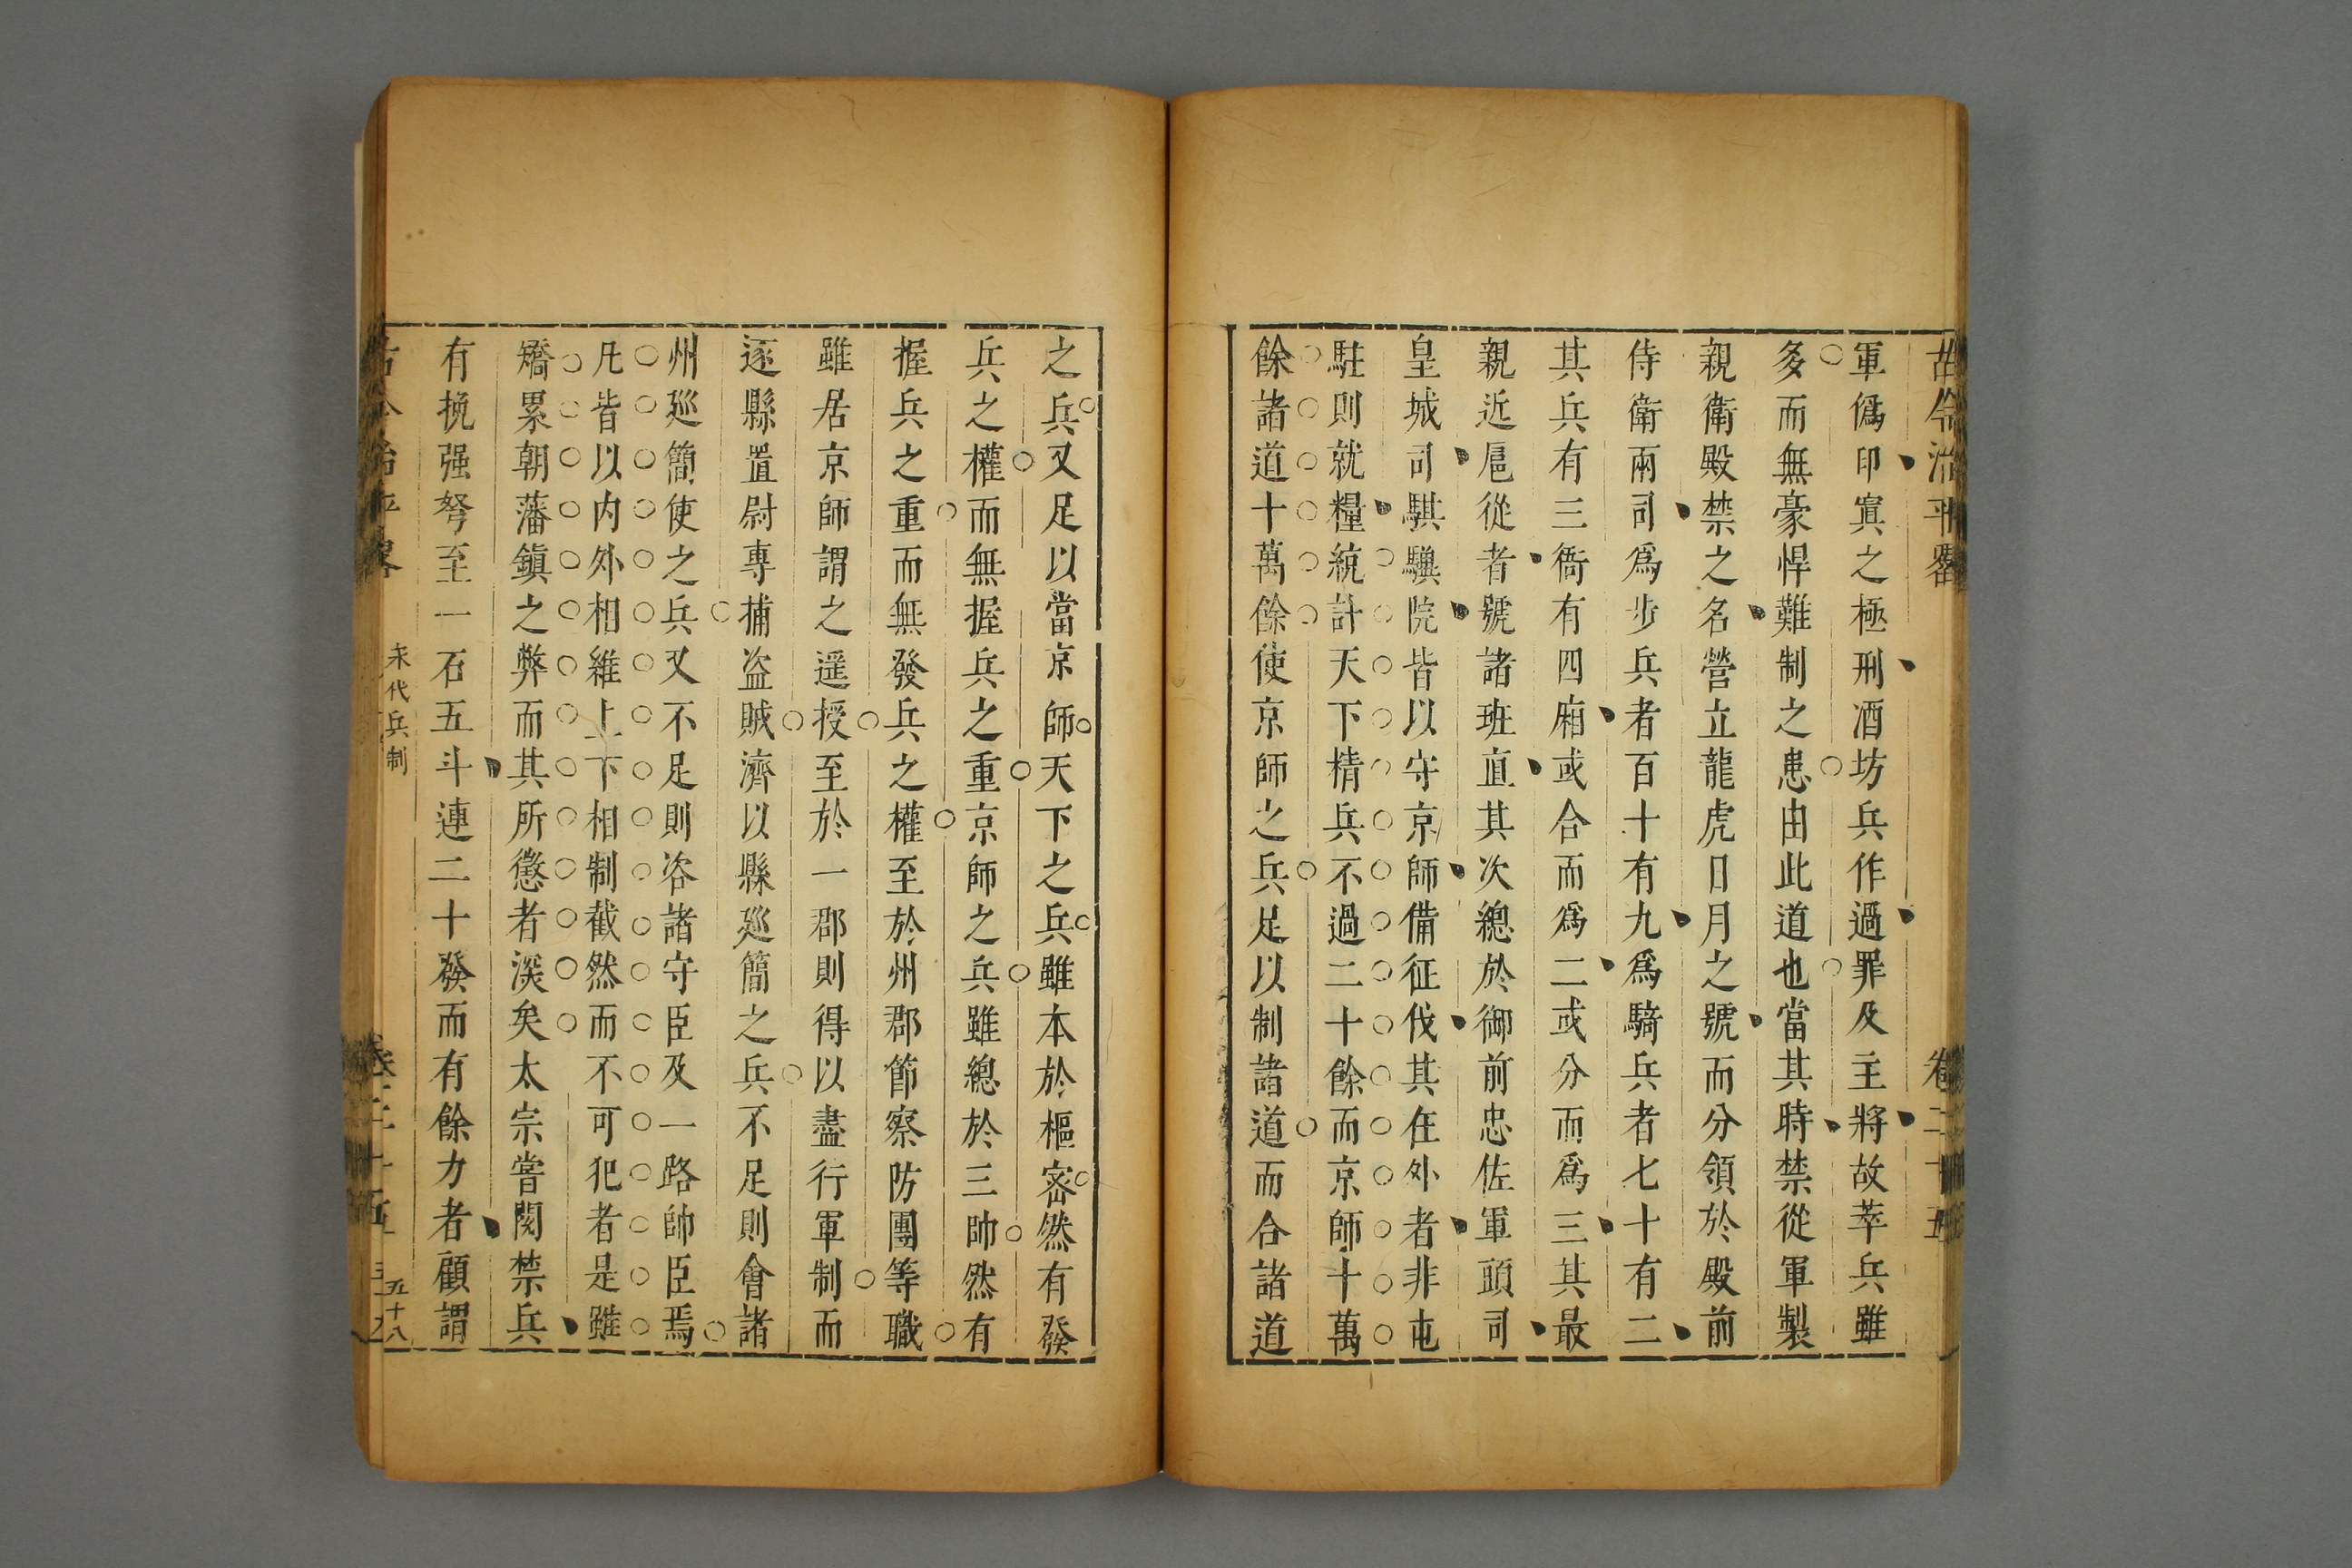 古今治平畧 卷二十五
軍僞印寘之極刑酒坊兵作過罪及主將故萃兵雖
多而無豪悍難制之患由此道也當其時禁從軍製
親衛殿禁之名營立龍虎日月之號而分領於殿前
侍衛兩司爲步兵者百十有九爲騎兵者七十有二
其兵有三衙有四廂或合而爲二或分而爲三其最
親近扈從者號諸班直其次總於御前忠佐軍頭司
皇城司騏驥院皆以守京師備征伐其在外者非屯
駐則就糧統計天下精兵不過二十餘而京師十萬
餘諸道十萬餘使京師之兵足以制諸道而合諸道
之兵又足以當京師天下之兵雖本於樞密然有發
兵之權而無握兵之重京師之兵雖總於三帥然有
握兵之重而無發兵之權至於州郡節察防團等職
雖居京師謂之遥授至於一郡則得以盡行軍制而
逐縣置尉專捕盜賊濟以縣廵簡之兵不足則會諸
州廵簡使之兵又不足則咨諸守臣及一路帥臣焉
凡皆以内外相維上下相制截然而不可犯者是雖
矯累朝藩鎮之弊而其所懲者深矣太宗嘗閱禁兵
有挽强弩至一石五斗連二十發而有餘力者顧謂
古今治平畧 宋代兵制 卷二十五 五十八